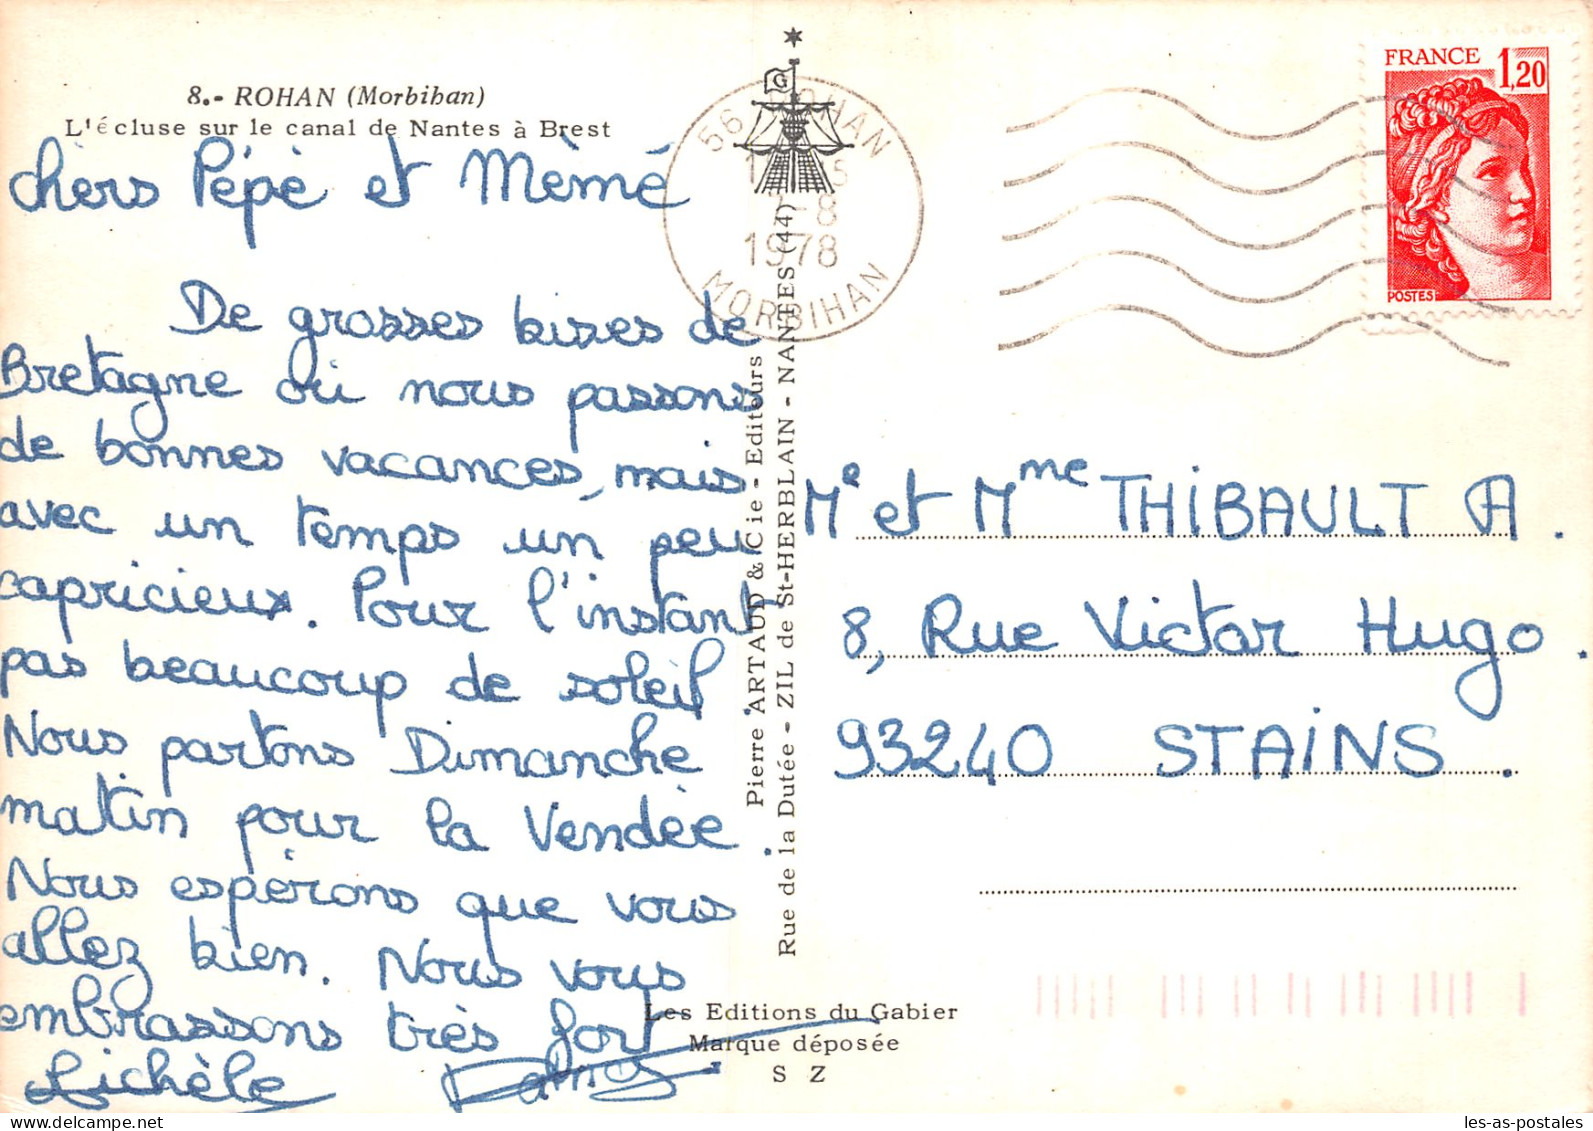 8.- ROHAN (Morbihan)
L'écluse sur le canal de Nantes à Brest
chers Pépé et Mèmé
De grosses bises de
Bretagne où nous passons
de bonnes vacances, mais
avec un temps un peu
capricieux. Pour l'instant
pas beaucoup de soleil.
Nous partons Dimanche
matin pour la Vendée.
Nous espérons que vous
allez bien. Nous vous
embrassons très fort
56 ROHAN
1978
MORBIHAN
G
Pierre ARTAUD & Cie - Editeurs
Rue de la Dutée - ZIL de St-HERBLAIN - NANTES (44)
FRANCE 1,20
POSTES
Mr et Mme THIBAULT A.
8, Rue Victor Hugo.
93240 STAINS.
Les Editions du Gabier
Marque déposée
S Z
les-as-postales